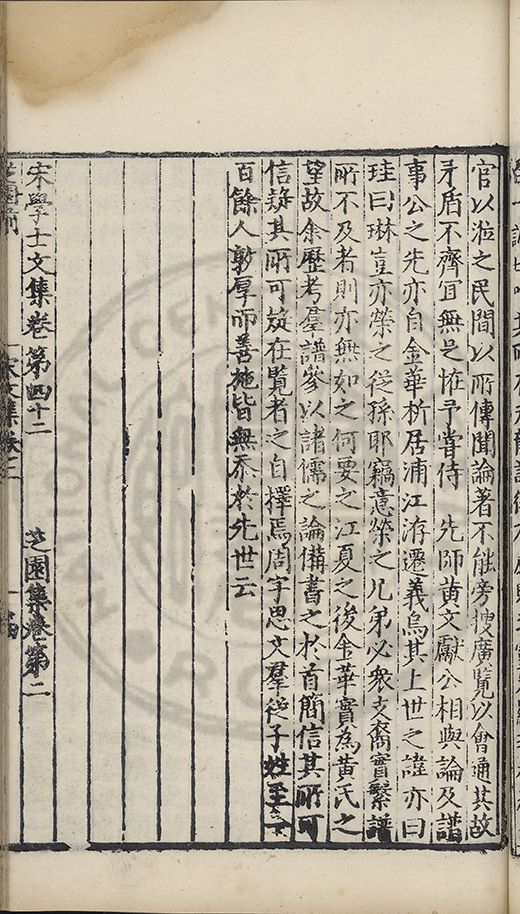 官以涖之民間以所傳聞論著不能旁搜廣覽以會通其故
矛盾不齊宜無足恠予嘗侍 先師黃文獻公相與論及譜
事公之先亦自金華析居浦江洊遷義烏其上世之諱亦曰
珪曰琳豈亦榮之從孫耶竊意榮之兄弟必衆支裔實繁譜
所不及者則亦無如之何要之江夏之後金華實為黃氏之
望故余歷考羣譜參以諸儒之論備書之於首簡信其所可
信疑其所可疑在覽者之自擇焉周字思文羣從子姓至
百餘人敦厚而善施皆無忝於先世云
宋學士文集卷第四十二 芝園集卷第二